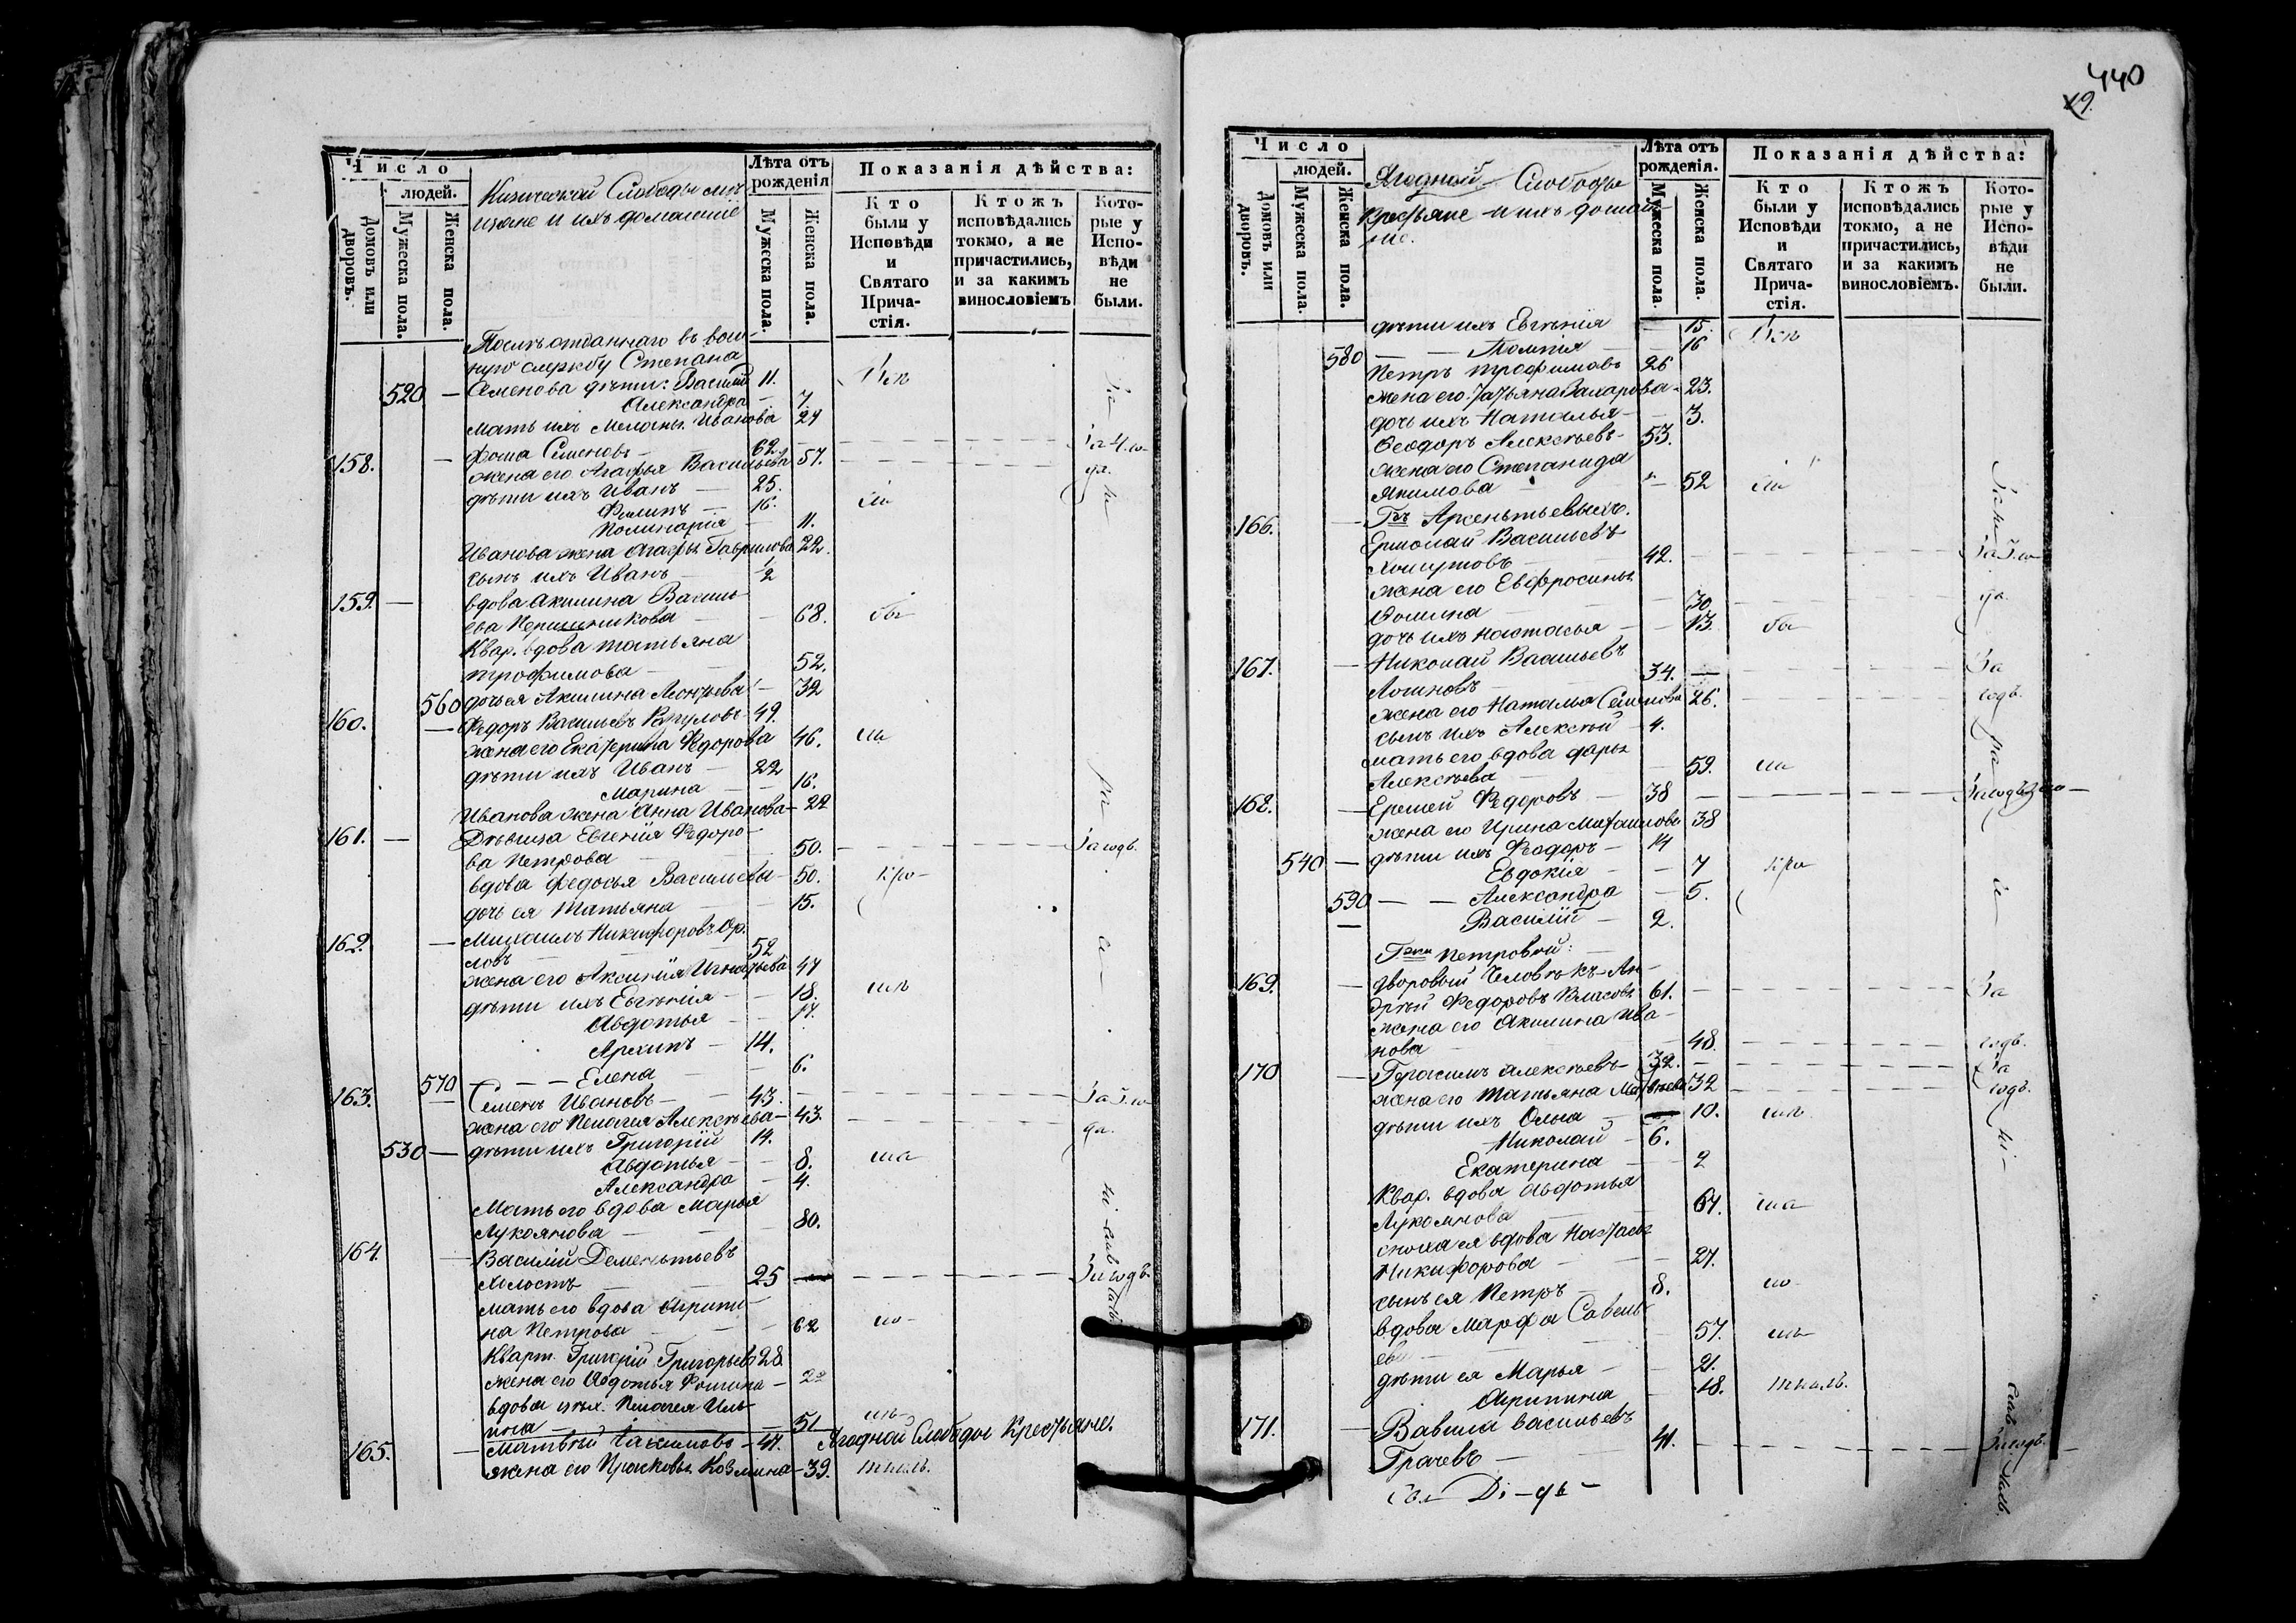 440
19.
Число
людей.
Домовъ или дворовъ.
Мужеска пола.
Женска пола.
Кизической Слободы мѣ-
щане и ихъ домашніе
Лѣта отъ рожденія
Мужеска пола.
Женска пола.
Показанія дѣйства:
Кто были у Исповѣди и Святаго Причастія.
Ктожъ исповѣдались токмо, а не причастились, и за какимъ винословіемъ
Которые у Исповѣди не были.
Послѣ отданнаго въ воен
ную службу Степана
520 — Семенова дѣти: Василій 11. Исп
Александра — 7.
мать ихъ Меланья Иванова 27
158. — Фома Семеновъ — 62
жена его Агафья Васильева 57.
дѣти ихъ Иванъ — 25.
Филипъ — 16.
Полинарія — 11.
Иванова жена Агафья Гаврилова 22.
сынъ ихъ Иванъ — 1/2
159. — вдова Акилина Василь-
ева — 68.
Квар. вдова татьяна
трофимова — 52.
560 дочь ея Акилина Леонтьева — 32
160. — Федоръ Васильевъ 49.
жена его Екатерина Федорова 46.
дѣти ихъ Иванъ — 22
Марина — 16.
Иванова жена Анна Иванова — 22
161. — Дѣвица Евгенія Федоро-
ва Петрова — 50. За годъ.
вдова Федосья Васильева — 50.
дочь ея Татьяна — 15.
162. — Михаилъ Никифоровъ Ор-
ловъ — 52
жена его Аксинія Игнатьева 47
дѣти ихъ Евгенія — 18.
Авдотья — 17.
Архипъ — 14.
570 — — — Елена — 6.
163. — Семенъ Ивановъ — 43.
жена его Пелагея Алексѣева — 43.
530 — дѣти ихъ Григорій 14.
Авдотья — 8.
Александра — 4.
Мать его вдова Марья
Лукоянова — 80.
164. — Василій Дементьевъ
холостъ — 25 За годъ.
мать его вдова Агрипи-
на Петрова — 62
Кварт. Григорій Григорьевъ 28.
жена его Авдотья Фомина — 22
вдова Пелагея Иль-
ина — 51
Ягодной Слободы Крестьяне.
165. — Матвей 47.
жена его Прасковья Козмина — 39.
Число
людей.
Домовъ или дворовъ.
Мужеска пола.
Женска пола.
Ягодной Слободы
Крестьяне и ихъ домаш-
ніе.
Лѣта отъ рожденія.
Мужеска пола.
Женска пола.
Показанія дѣйства:
Кто были у Исповѣди и Святаго Причастія.
Ктожъ исповѣдались токмо, а не причастились, и за какимъ винословіемъ.
Которые у Исповѣди не были.
дѣти ихъ Евгенія — 15. Исп
580 — — — 16
Петръ трофимовъ 26
жена его Татьяна Захарова — 23.
дочь ихъ Наталья — 3.
Феодоръ Алексѣевъ — 53.
жена его Степанида
Якимова — 52
166. — Гдъ Арсеньтьевыхъ.
Ермолай Васильевъ
Хомутовъ — 42.
жена его Евфросинья
Фомина — 30.
дочь ихъ Настасья — 13
167. — Николай Васильевъ
Логиновъ — 34. За
жена его Наталья Семенова 26. годъ.
сынъ ихъ Алексѣй — 4.
мать его вдова Дарья
Алексѣева — 59.
168. — Еремей Федоровъ — 38
жена его Ирина Михаилова 38
540 — дѣти ихъ Феодоръ — 14
Евдокія — 7
590 — — Александра — 5.
— Василій — 2.
Гжи Петровой:
169. — дворовый Человѣкъ Ан-
дрѣй Федоровъ Власовъ 61. За
жена его Акилина Ива-
нова — 48. годъ.
170 — Герасимъ Алексѣевъ — 32. За
жена его татьяна Матвѣева 32 годъ.
дѣти ихъ Ольга — 10.
Николай — 6.
Екатерина — 2
Квар. вдова Авдотья
Лукоянова — 67.
сноха ея вдова Настасья
Никифорова — 27.
сынъ ея Петръ — 8.
вдова Марфа Савель-
ева — 57.
дѣти ея Марья — 21.
Агрипина — 18.
171. — Вавила Васильевъ
Грачевъ — 41. За годъ.